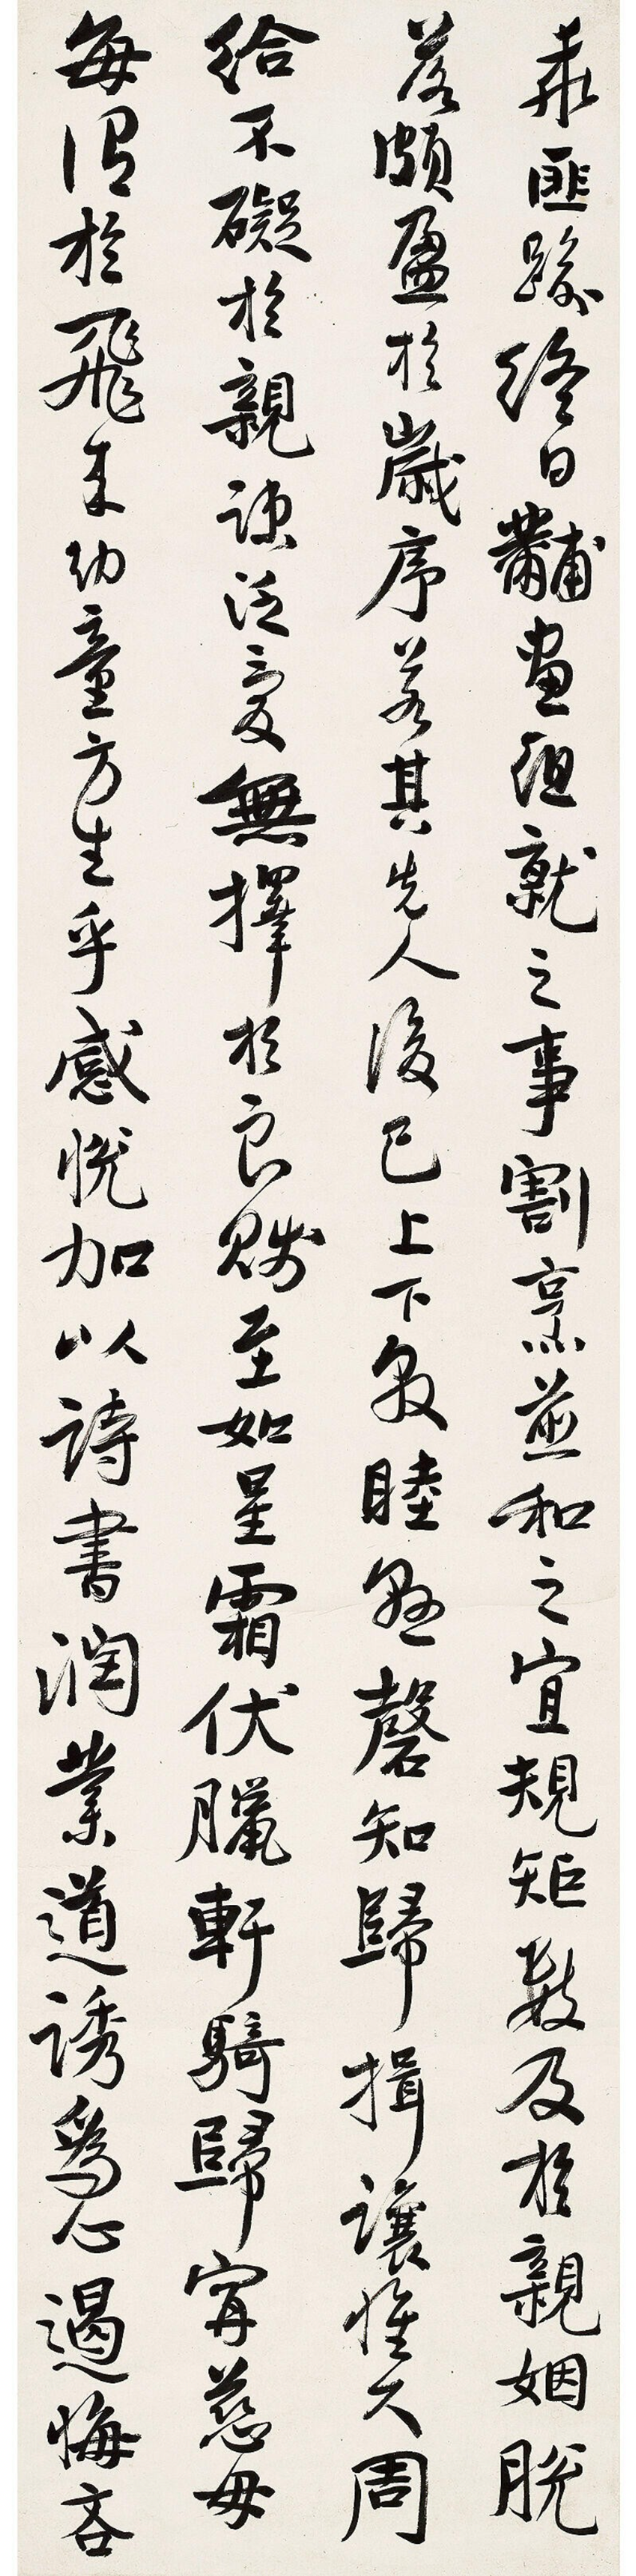 乖匪終日黼畫組就之事割烹煎和之宜規矩數及於親姻脫
落頗盈於歲序若其先人後己上下敦睦懸罄知歸揖讓惟久周
給不礙於親疎泛愛無擇於良賤至如星霜伏臘軒騎歸寧慈母
每謂於飛來幼童方生乎感悅加以詩書潤業道誘爲心遏悔吝